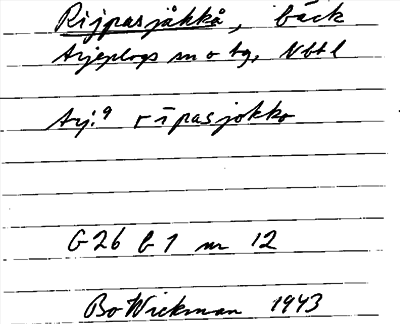 Rijpasjåkkå, bäck
Arjeplogs sn o tg, Nbtl
Arj:9 rīpasjokko
G26 b 1 nr 12
Bo Wickman 1943